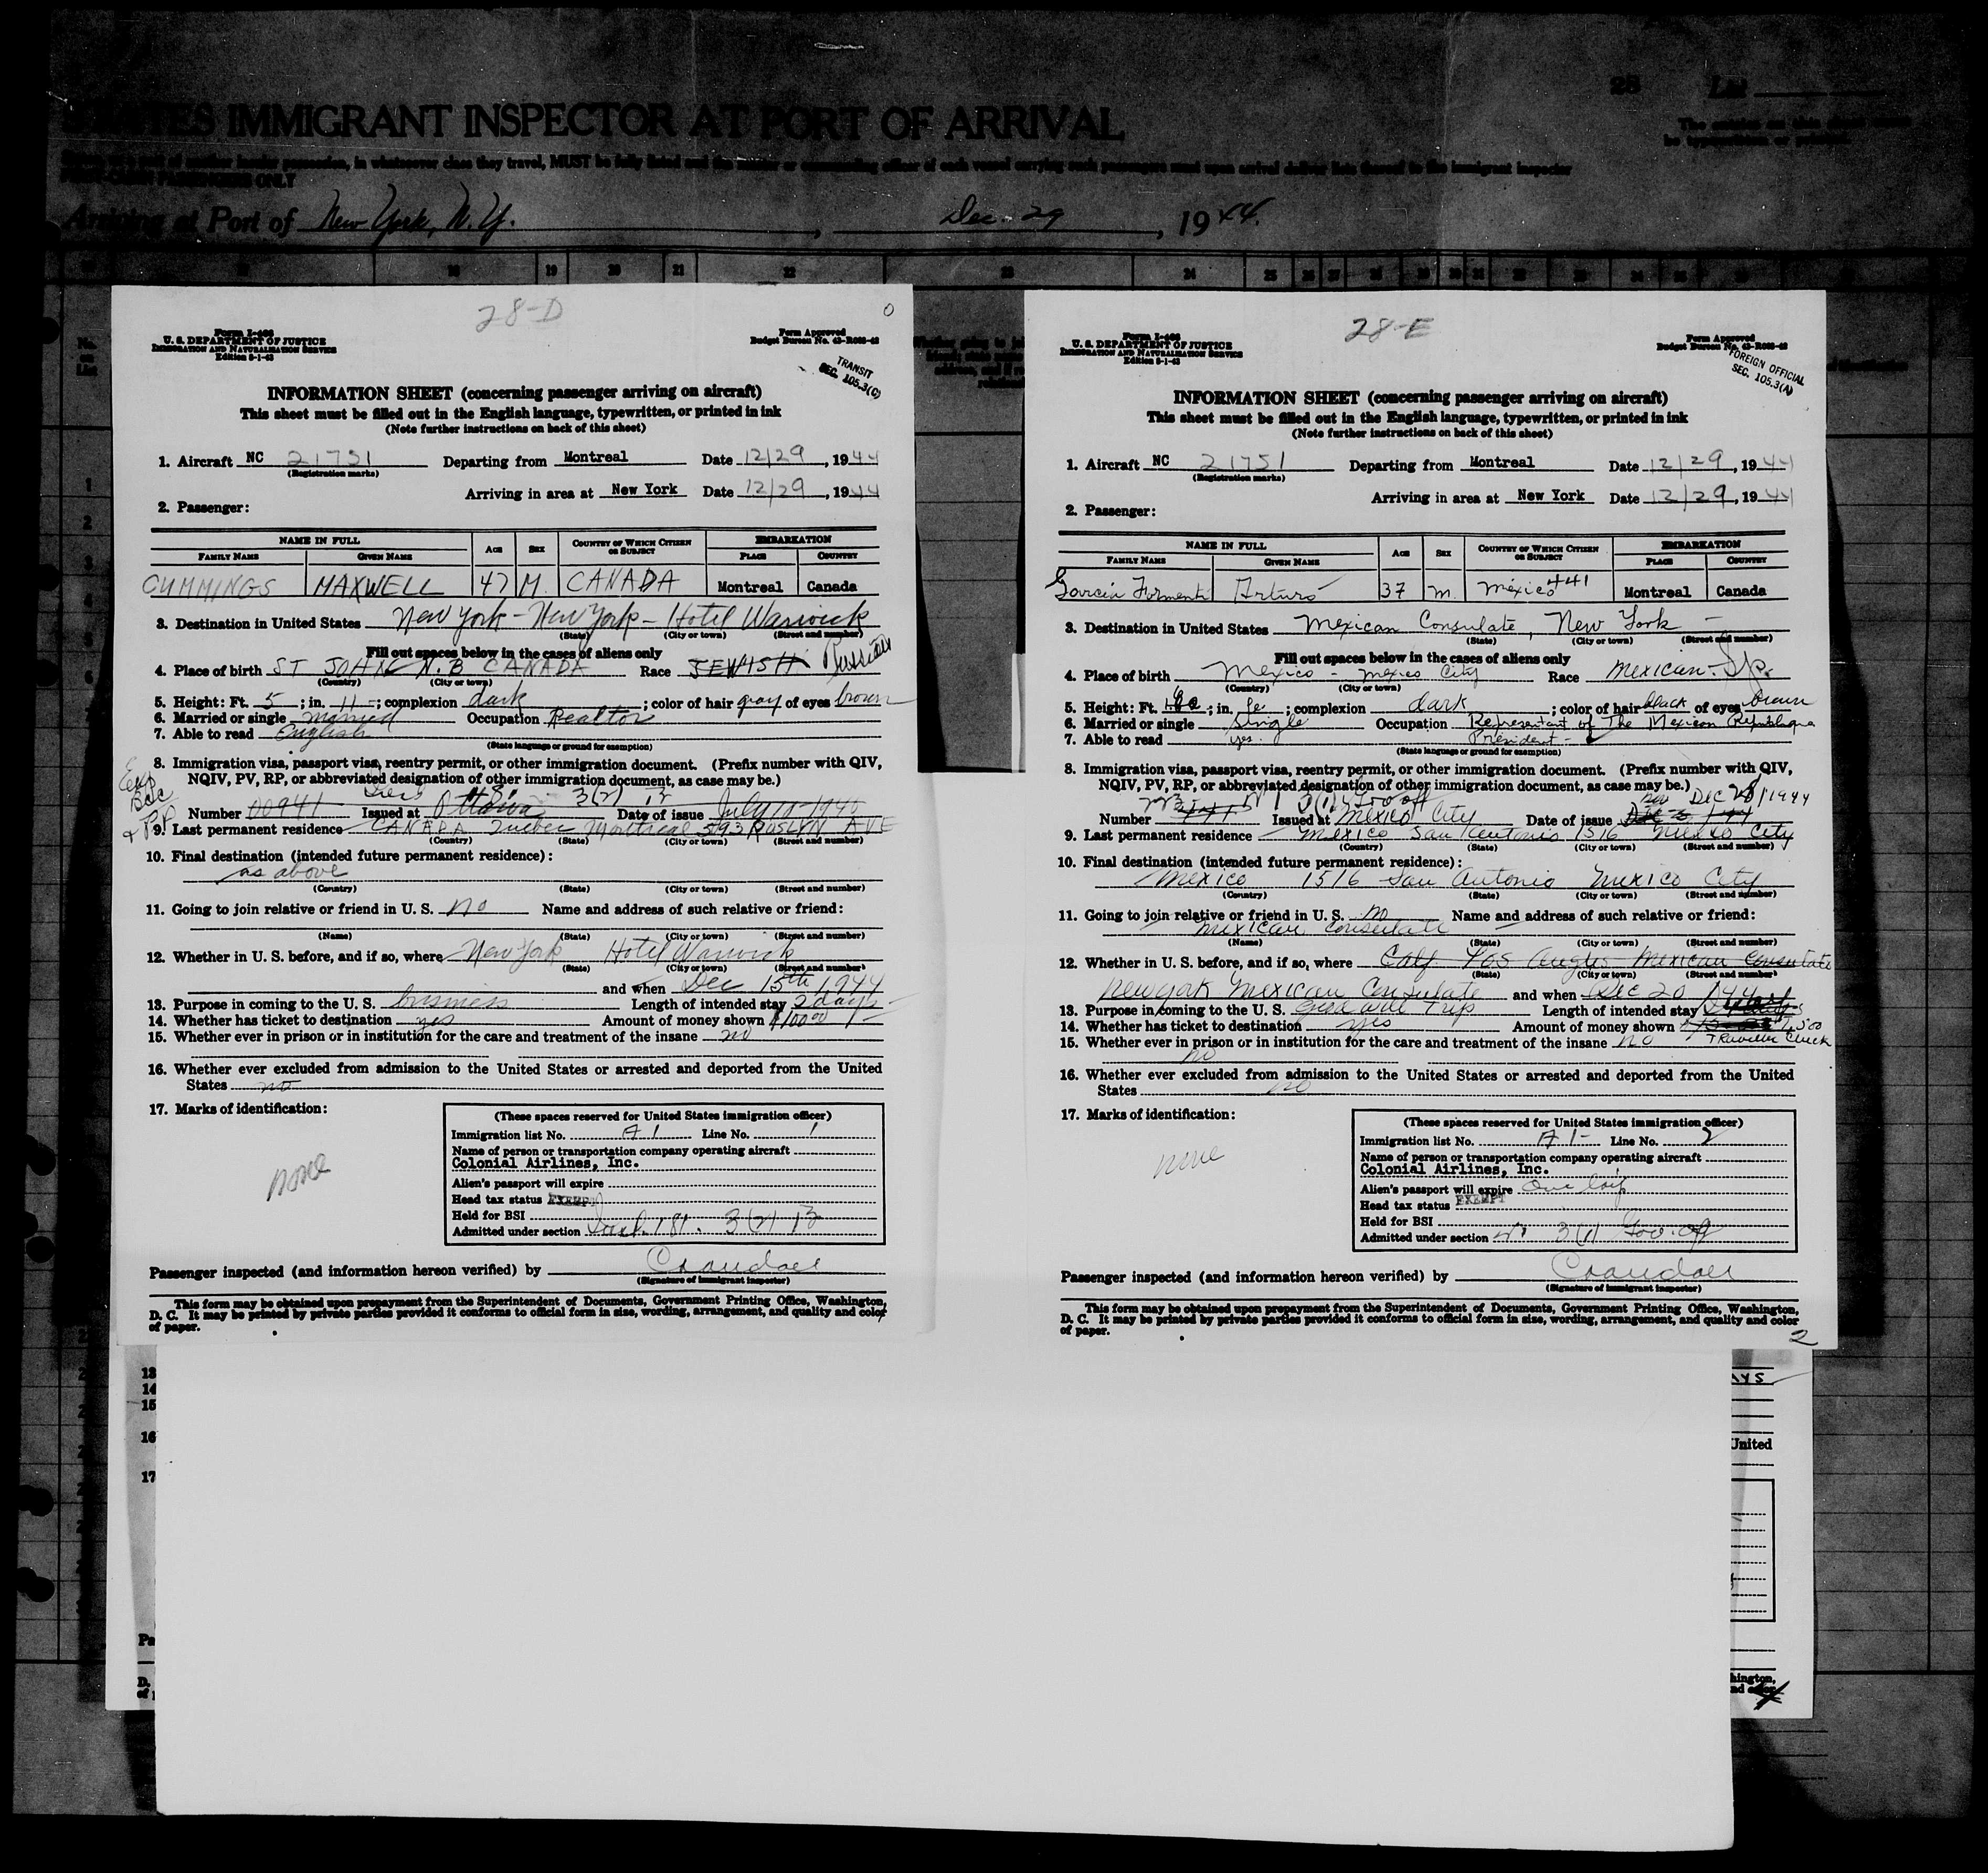 STATES IMMIGRANT INSPECTOR AT PORT OF ARRIVAL
28 List
Arriving at Port of New York, N. Y. , Dec. 29 , 1944.
17 18 19 20 21 22 23 24 25 26 27 28
28-D
0
Form I-466
U. S. DEPARTMENT OF JUSTICE
IMMIGRATION AND NATURALIZATION SERVICE
Edition 8-1-43
Form Approved
Budget Bureau No. 43-R028-42
TRANSIT
SEC. 105.3(C)
INFORMATION SHEET (concerning passenger arriving on aircraft)
This sheet must be filled out in the English language, typewritten, or printed in ink
(Note further instructions on back of this sheet)
1. Aircraft NC 21751 Departing from Montreal Date 12/29, 1944
(Registration marks)
Arriving in area at New York Date 12/29, 1944
2. Passenger:
NAME IN FULL AGE SEX COUNTRY OF WHICH CITIZEN OR SUBJECT EMBARKATION
FAMILY NAME GIVEN NAME PLACE COUNTRY
CUMMINGS MAXWELL 47 M. CANADA Montreal Canada
3. Destination in United States New York - New York - Hotel Warwick
(State) (City or town) (Street and number)
Fill out spaces below in the cases of aliens only
4. Place of birth ST JOHN N.B CANADA Race JEWISH Russian
(Country) (City or town)
5. Height: Ft. 5 ; in. 11 ; complexion dark ; color of hair gray of eyes brown
6. Married or single married Occupation Realtor
7. Able to read English
(State language or ground for exemption)
8. Immigration visa, passport visa, reentry permit, or other immigration document. (Prefix number with QIV,
NQIV, PV, RP, or abbreviated designation of other immigration document, as case may be.)
Number 00941 Issued at Ottawa Date of issue July 10-1940
9. Last permanent residence CANADA Quebec Montreal 593 ROSLYN AVE
(Country) (State) (City or town) (Street and number)
10. Final destination (intended future permanent residence):
as above
(Country) (State) (City or town) (Street and number)
11. Going to join relative or friend in U. S. No Name and address of such relative or friend:
(Name) (State) (City or town) (Street and number)
12. Whether in U. S. before, and if so, where New York Hotel Warwick
(State) (City or town) (Street and number)
and when Dec 15th 1944
13. Purpose in coming to the U. S. business Length of intended stay 2 days
14. Whether has ticket to destination yes Amount of money shown $100.00
15. Whether ever in prison or in institution for the care and treatment of the insane no
16. Whether ever excluded from admission to the United States or arrested and deported from the United
States no
17. Marks of identification:
none
(These spaces reserved for United States immigration officer)
Immigration list No. A 1 Line No. 1
Name of person or transportation company operating aircraft
Colonial Airlines, Inc.
Alien's passport will expire
Head tax status EXEMPT
Held for BSI
Admitted under section 3(2)
Passenger inspected (and information hereon verified) by Crandall
(Signature of immigrant inspector)
This form may be obtained upon prepayment from the Superintendent of Documents, Government Printing Office, Washington,
D. C. It may be printed by private parties provided it conforms to official form in size, wording, arrangement, and quality and color
of paper.
28-E
Form I-466
U. S. DEPARTMENT OF JUSTICE
IMMIGRATION AND NATURALIZATION SERVICE
Edition 8-1-43
Form Approved
Budget Bureau No. 43-R028-42
FOREIGN OFFICIAL
SEC. 105.3(A)
INFORMATION SHEET (concerning passenger arriving on aircraft)
This sheet must be filled out in the English language, typewritten, or printed in ink
(Note further instructions on back of this sheet)
1. Aircraft NC 21751 Departing from Montreal Date 12/29, 1944
(Registration marks)
Arriving in area at New York Date 12/29, 1944
2. Passenger:
NAME IN FULL AGE SEX COUNTRY OF WHICH CITIZEN OR SUBJECT EMBARKATION
FAMILY NAME GIVEN NAME PLACE COUNTRY
Garcia Formenti Arturo 37 m. mexico 441 Montreal Canada
3. Destination in United States Mexican Consulate, New York -
(State) (City or town) (Street and number)
Fill out spaces below in the cases of aliens only
4. Place of birth Mexico - mexico City Race mexican - Sp.
(Country) (City or town)
5. Height: Ft. ; in. ; complexion dark ; color of hair black of eyes brown
6. Married or single Single Occupation Representant of The Mexican Republique
7. Able to read yes. President -
(State language or ground for exemption)
8. Immigration visa, passport visa, reentry permit, or other immigration document. (Prefix number with QIV,
NQIV, PV, RP, or abbreviated designation of other immigration document, as case may be.)
Number Issued at Mexico City Date of issue
9. Last permanent residence Mexico San Antonio 1516 Mexico City
(Country) (State) (City or town) (Street and number)
10. Final destination (intended future permanent residence):
Mexico 1516 San Antonio Mexico City
(Country) (State) (City or town) (Street and number)
11. Going to join relative or friend in U. S. no Name and address of such relative or friend:
Mexican Consulate
(Name) (State) (City or town) (Street and number)
12. Whether in U. S. before, and if so, where Calf Los Angles Mexican Consulate
(State) (City or town) (Street and number)
New york Mexican Consulate and when Dec 20 1944
13. Purpose in coming to the U. S. Good will Trip Length of intended stay
14. Whether has ticket to destination yes Amount of money shown
15. Whether ever in prison or in institution for the care and treatment of the insane no
no
16. Whether ever excluded from admission to the United States or arrested and deported from the United
States no
17. Marks of identification:
none
(These spaces reserved for United States immigration officer)
Immigration list No. A 1- Line No. 2
Name of person or transportation company operating aircraft
Colonial Airlines, Inc.
Alien's passport will expire
Head tax status EXEMPT
Held for BSI
Admitted under section 3(1) Gov. off
Passenger inspected (and information hereon verified) by Crandall
(Signature of immigrant inspector)
This form may be obtained upon prepayment from the Superintendent of Documents, Government Printing Office, Washington,
D. C. It may be printed by private parties provided it conforms to official form in size, wording, arrangement, and quality and color
of paper.
2